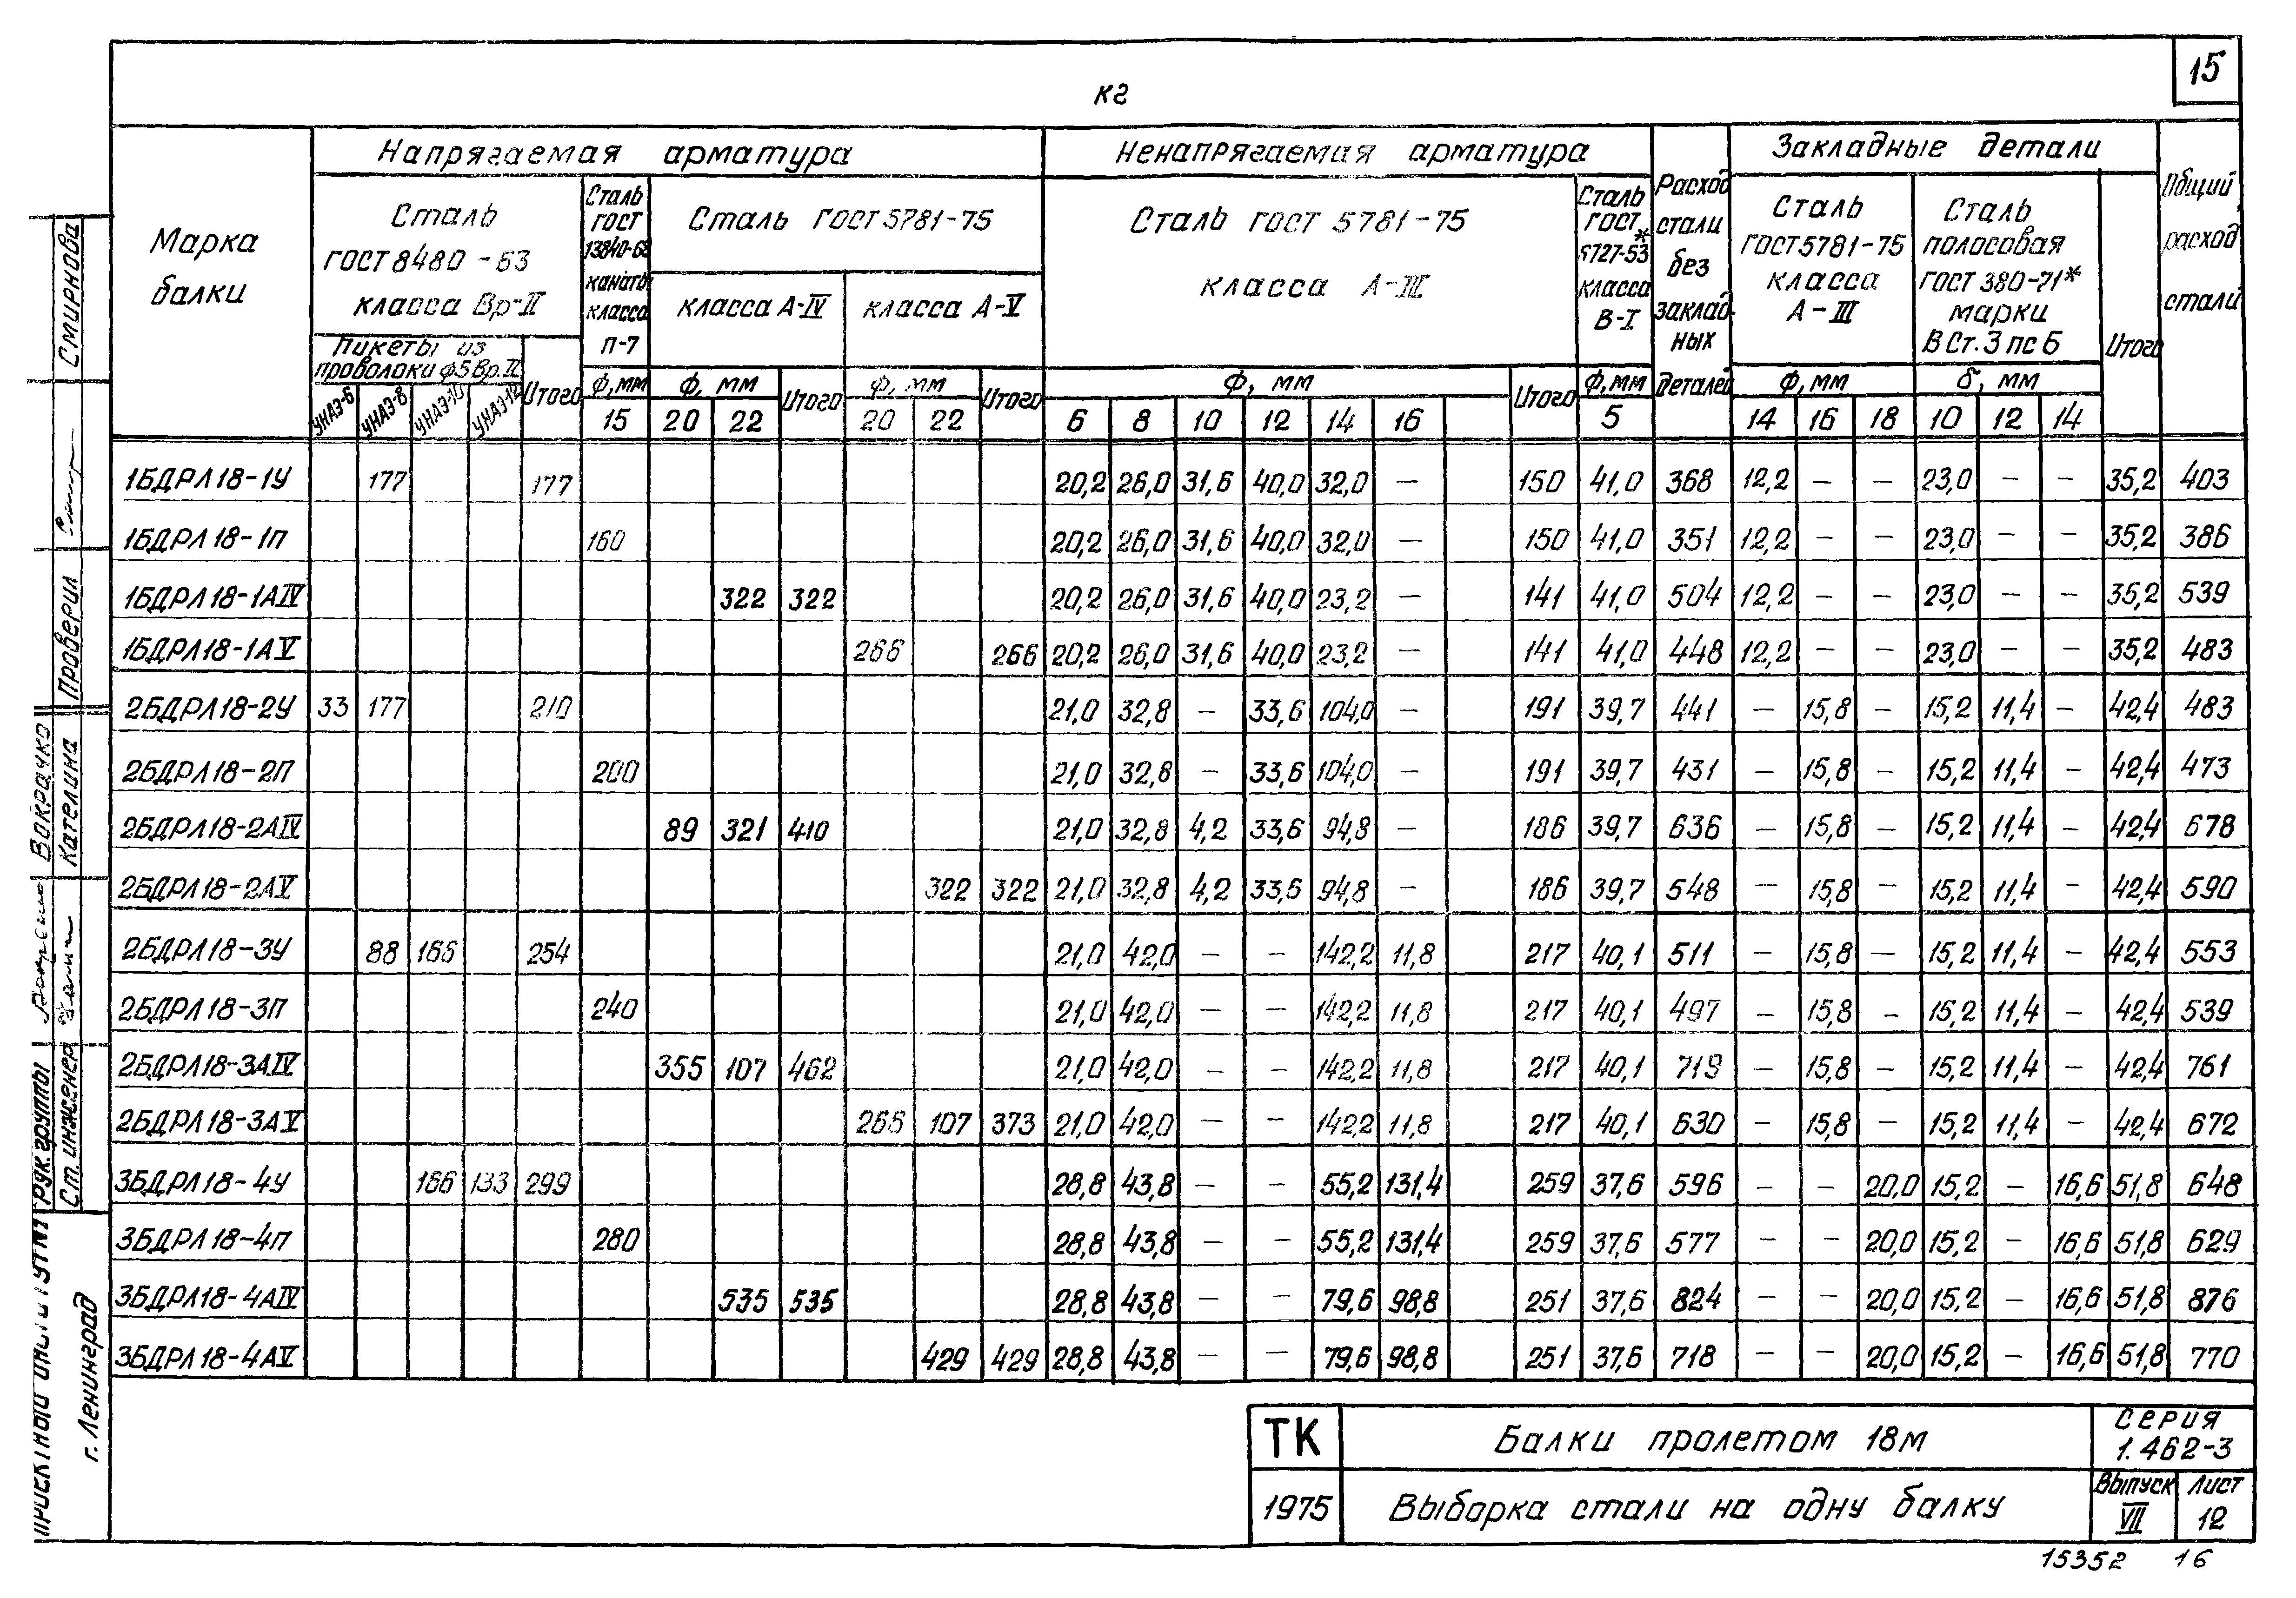 15
кг
Марка балки
Напрягаемая арматура
Ненапрягаемая арматура
Расход стали без закладных деталей
Закладные детали
Общий расход стали
Сталь ГОСТ 8480-63 класса Вр-II
Сталь ГОСТ 13840-68 канаты класса П-7
Сталь ГОСТ 5781-75
Сталь ГОСТ 5781-75 класса А-III
Сталь ГОСТ 5727-53* класса В-I
Сталь ГОСТ 5781-75 класса А-III
Сталь полосовая ГОСТ 380-71* марки В Ст. 3 пс 6
Итого
класса А-IV
класса А-V
Пакеты из проволоки ф5 Вр.II
Итого
ф, мм
ф, мм
Итого
ф, мм
Итого
ф, мм
Итого
ф, мм
ф, мм
δ, мм
УНАЭ-6 УНАЭ-8 УНАЭ-10 УНАЭ-12 15 20 22 20 22 6 8 10 12 14 16 5 14 16 18 10 12 14
1БДРЛ18-1У 177 177 20,2 26,0 31,6 40,0 32,0 — 150 41,0 368 12,2 — — 23,0 — — 35,2 403
1БДРЛ18-1П 160 20,2 26,0 31,6 40,0 32,0 — 150 41,0 351 12,2 — — 23,0 — — 35,2 386
1БДРЛ18-1АIV 322 322 20,2 26,0 31,6 40,0 23,2 — 141 41,0 504 12,2 — — 23,0 — — 35,2 539
1БДРЛ18-1АV 266 266 20,2 26,0 31,6 40,0 23,2 — 141 41,0 448 12,2 — — 23,0 — — 35,2 483
2БДРЛ18-2У 33 177 210 21,0 32,8 — 33,6 104,0 — 191 39,7 441 — 15,8 — 15,2 11,4 — 42,4 483
2БДРЛ18-2П 200 21,0 32,8 — 33,6 104,0 — 191 39,7 431 — 15,8 — 15,2 11,4 — 42,4 473
2БДРЛ18-2АIV 89 321 410 21,0 32,8 4,2 33,6 94,8 — 186 39,7 636 — 15,8 — 15,2 11,4 — 42,4 678
2БДРЛ18-2АV 322 322 21,0 32,8 4,2 33,6 94,8 — 186 39,7 548 — 15,8 — 15,2 11,4 — 42,4 590
2БДРЛ18-3У 88 166 254 21,0 42,0 — — 142,2 11,8 217 40,1 511 — 15,8 — 15,2 11,4 — 42,4 553
2БДРЛ18-3П 240 21,0 42,0 — — 142,2 11,8 217 40,1 497 — 15,8 — 15,2 11,4 — 42,4 539
2БДРЛ18-3АIV 355 107 462 21,0 42,0 — — 142,2 11,8 217 40,1 719 — 15,8 — 15,2 11,4 — 42,4 761
2БДРЛ18-3АV 266 107 373 21,0 42,0 — — 142,2 11,8 217 40,1 630 — 15,8 — 15,2 11,4 — 42,4 672
3БДРЛ18-4У 166 133 299 28,8 43,8 — — 55,2 131,4 259 37,6 596 — — 20,0 15,2 — 16,6 51,8 648
3БДРЛ18-4П 280 28,8 43,8 — — 55,2 131,4 259 37,6 577 — — 20,0 15,2 — 16,6 51,8 629
3БДРЛ18-4АIV 535 535 28,8 43,8 — — 79,6 98,8 251 37,6 824 — — 20,0 15,2 — 16,6 51,8 876
3БДРЛ18-4АV 429 429 28,8 43,8 — — 79,6 98,8 251 37,6 718 — — 20,0 15,2 — 16,6 51,8 770
ТК
Балки пролетом 18м
Серия 1.462-3
1975
Выборка стали на одну балку
Выпуск VII
Лист 12
15352 16
Рук. группы Вокрачко
Ст. инженер Кателина
Проверил Смирнова
г. Ленинград